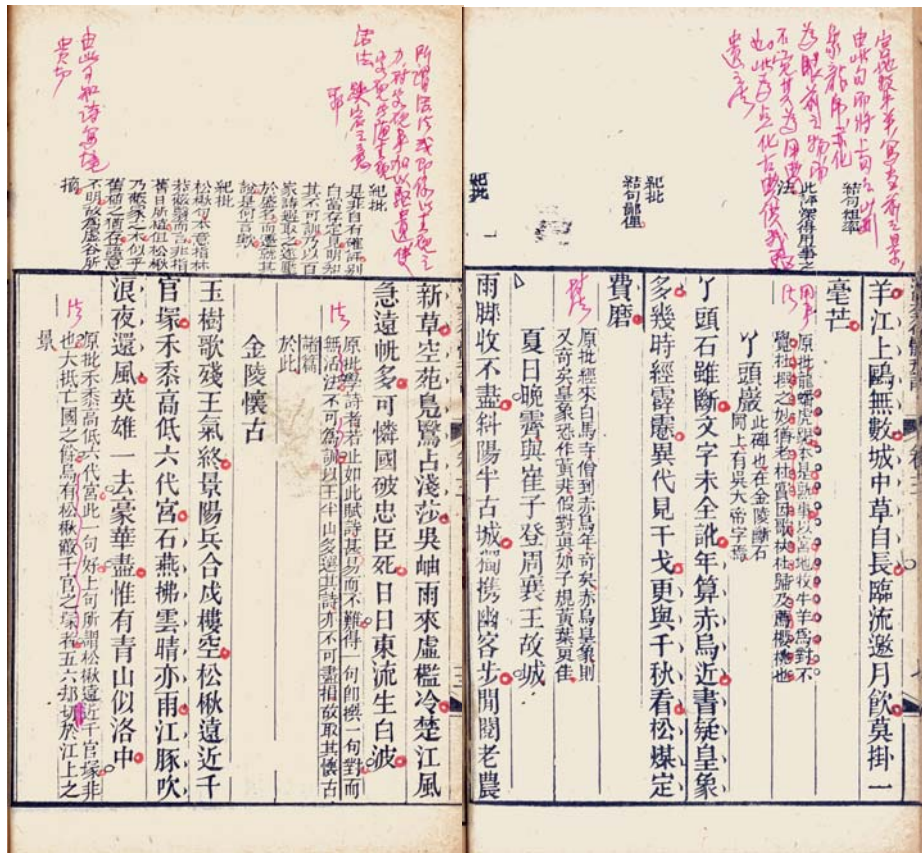 不覺其爲用典
如此爲点化古典供我驅
遣之法
結句粗率
此評深得用事之
法
紀批
結句鄙俚
紀批
羊江上鷗無數城中草自長臨流邀月飲莫掛一
毫芒
用事
法
原批龍蟠虎踞本是熟事以宮地牧牛羊爲對不
覺杜撰之妙猶老杜
丫頭巖
此碑也在金陵斷石
岡上有吳大帝字蹟
丫頭石雖斷文字未全訛年算赤烏近書疑皇象
多幾時經霹靂異代見干戈更與千秋看松煤定
費磨
原批經來白馬寺僧到赤烏年奇矣赤烏皇象則
又奇矣皇象恐作黃非假對真如子規黃葉更佳
夏日晚霽與崔子登周襄王故城
雨腳收不盡斜陽半古城獨携幽客步閒閱老農
所謂活法
活法
由此可知詩無
貴切
紀批
是非自有確評別
白當存定見明知
其不可訓乃以百
家詩選取之遂
於盛名而遷就其
說是何言歟
紀批
松楸句本意指林
若薺盬而言非指
舊日所植但松楸
乃葬家之木似乎
舊植之猶存語意
不明故爲虛谷所
摘
新草空苑鳥驚占淺莎吳岫雨來虛檻冷楚江風
急遠帆多可憐國破忠臣死日日東流生白波
法
原批學詩者若止如此賦詩甚易而不難得一句即撰一句對而
無活法不可爲訓以王半山多選其詩亦不可盡捐故取其懷古
諸篇
於此
金陵懷古
玉樹歌殘王氣終景陽兵合戍樓空松楸遠近千
官塚禾黍高低六代宮石燕拂雲晴亦雨江豚吹
浪夜還風英雄一去豪華盡惟有青山似洛中
法
原批禾黍高低六代宮此一句好上句所謂松楸遠近千官塚非
也大抵亡國之餘烏有松楸蔽千官之塚者五六却切於江上之
景